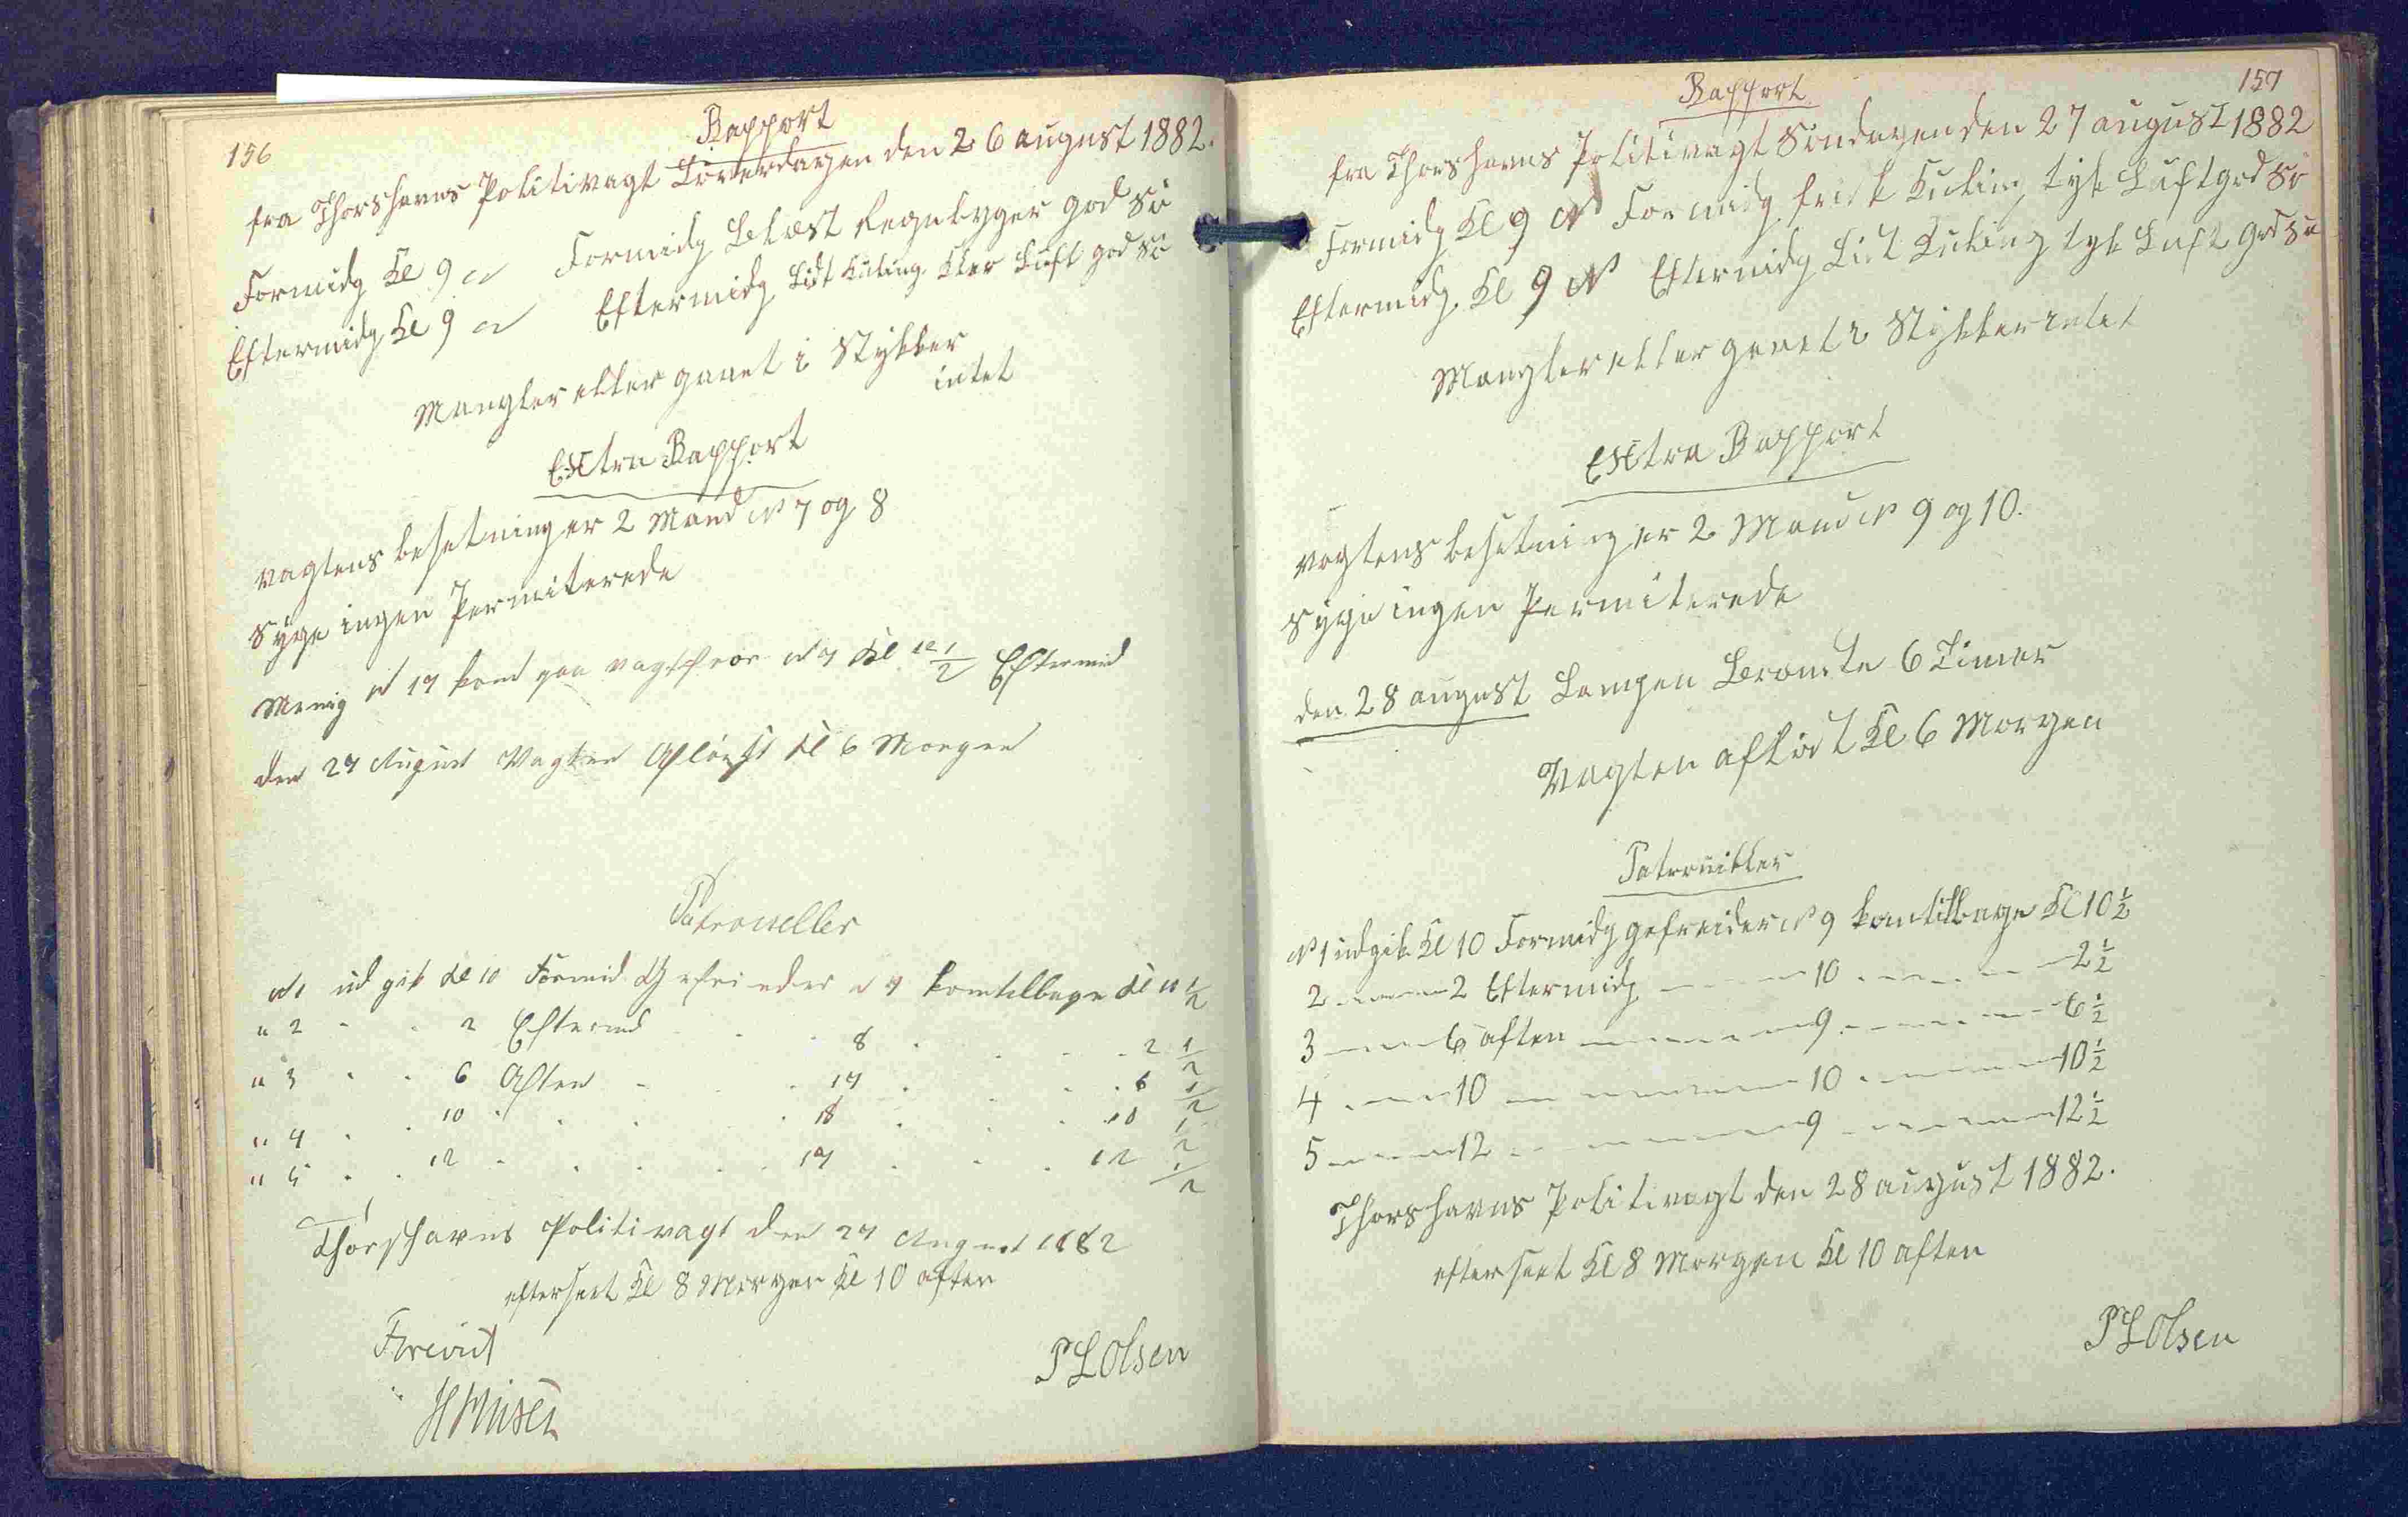 156
Rapport
fra Thorshavns Politivagt Löverdagen den 26 august 1882.
Formidg Kl 9 N Formidg Blæst Regnbyger god Sö
Eftermidg Kl 9 N Eftermidg Lidt Kuling Klar Luft god Sö
Mangler eller gaaet i Stykker
intet
Extra Rapport
vagtens besetning er 2 Mand N 7 og 8
Syge ingen Permiterede
Menig N 17 kom paa vagt for N 7 Kl 12 1/2 Eftermid
den 27 August Vagten Aflöst Kl 6 Morgen
Patroueller
N 1 udgik Kl 10 Formid Gefreider N 7 kom tilbage Kl 10 1/2
" 2 - - 2 Eftermid - - 8 - - - 2 1/2
" 3 - - 6 Aften - - 17 - - - 6 1/2
" 4 - - 10 - - - 18 - - - 10 1/2
" 5 - - 12 - - - 17 - - - 12 1/2
Thorshavns Politivagt den 27 August 1882
efterseet Kl 8 Morgen Kl 10 aften
Forevist
P L Olsen
157
Rapport
fra Thorshavns Politivagt Söndagen den 27 august 1882
Formidg Kl 9 N Formidg frisk Kuling tyk Luft god Sö
Eftermidg. Kl 9 N Eftermidg Lidt Kuling tyk Luft god Sö
Mangler eller gaaet i Stykker intet
Extra Rapport
vagtens besetning er 2 Mand N 9 og 10.
Syge ingen Permiterede
den 28 august Lampen Brændte 6 Timer
Vagten aflöst Kl 6 Morgen
Patrouiller
N 1 udgik Kl 10 Formidg gefreider N 9 kom tilbage Kl 10 1/2
2 ---- 2 Eftermidg ---- 10 ---- 2 1/2
3 ---- 6 aften ---- 9 ---- 6 1/2
4 ---- 10 ---- 10 ---- 10 1/2
5 ---- 12 ---- 9 ---- 12 1/2
Thorshavns Politivagt den 28 august 1882.
efterseet Kl 8 Morgen Kl 10 aften
P L Olsen